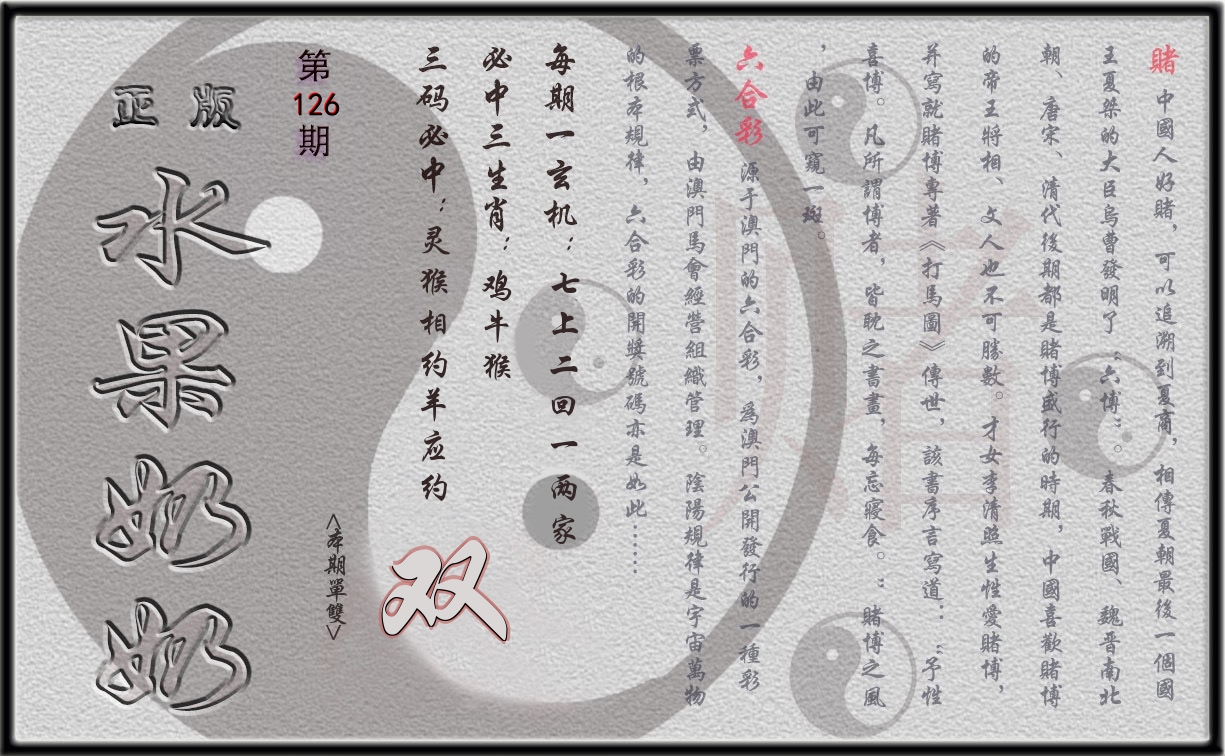 賭 中國人好賭，可以追溯到夏商，相傳夏朝最後一個國
王夏桀的大臣烏曹發明了“六博”。春秋戰國、魏晋南北
朝、唐宋、清代後期都是賭博盛行的時期，中國喜歡賭博
的帝王將相、文人也不可勝數。才女李清照生性愛賭博，
并寫就賭博專著《打馬圖》傳世，該書序言寫道：“予性
喜博。凡所謂博者，皆耽之書畫，每忘寢食。”賭博之風
，由此可窺一斑。
六合彩 源于澳門的六合彩，為澳門公開發行的一種彩
票方式，由澳門馬會經營組織管理。陰陽規律是宇宙萬物
的根本規律，六合彩的開獎號碼亦是如此……
每期一玄机：七上二回一两家
必中三生肖：鸡牛猴
三码必中：灵猴相约羊应约
双
<本期單雙>
第
126
期
正版
水果奶奶
賭